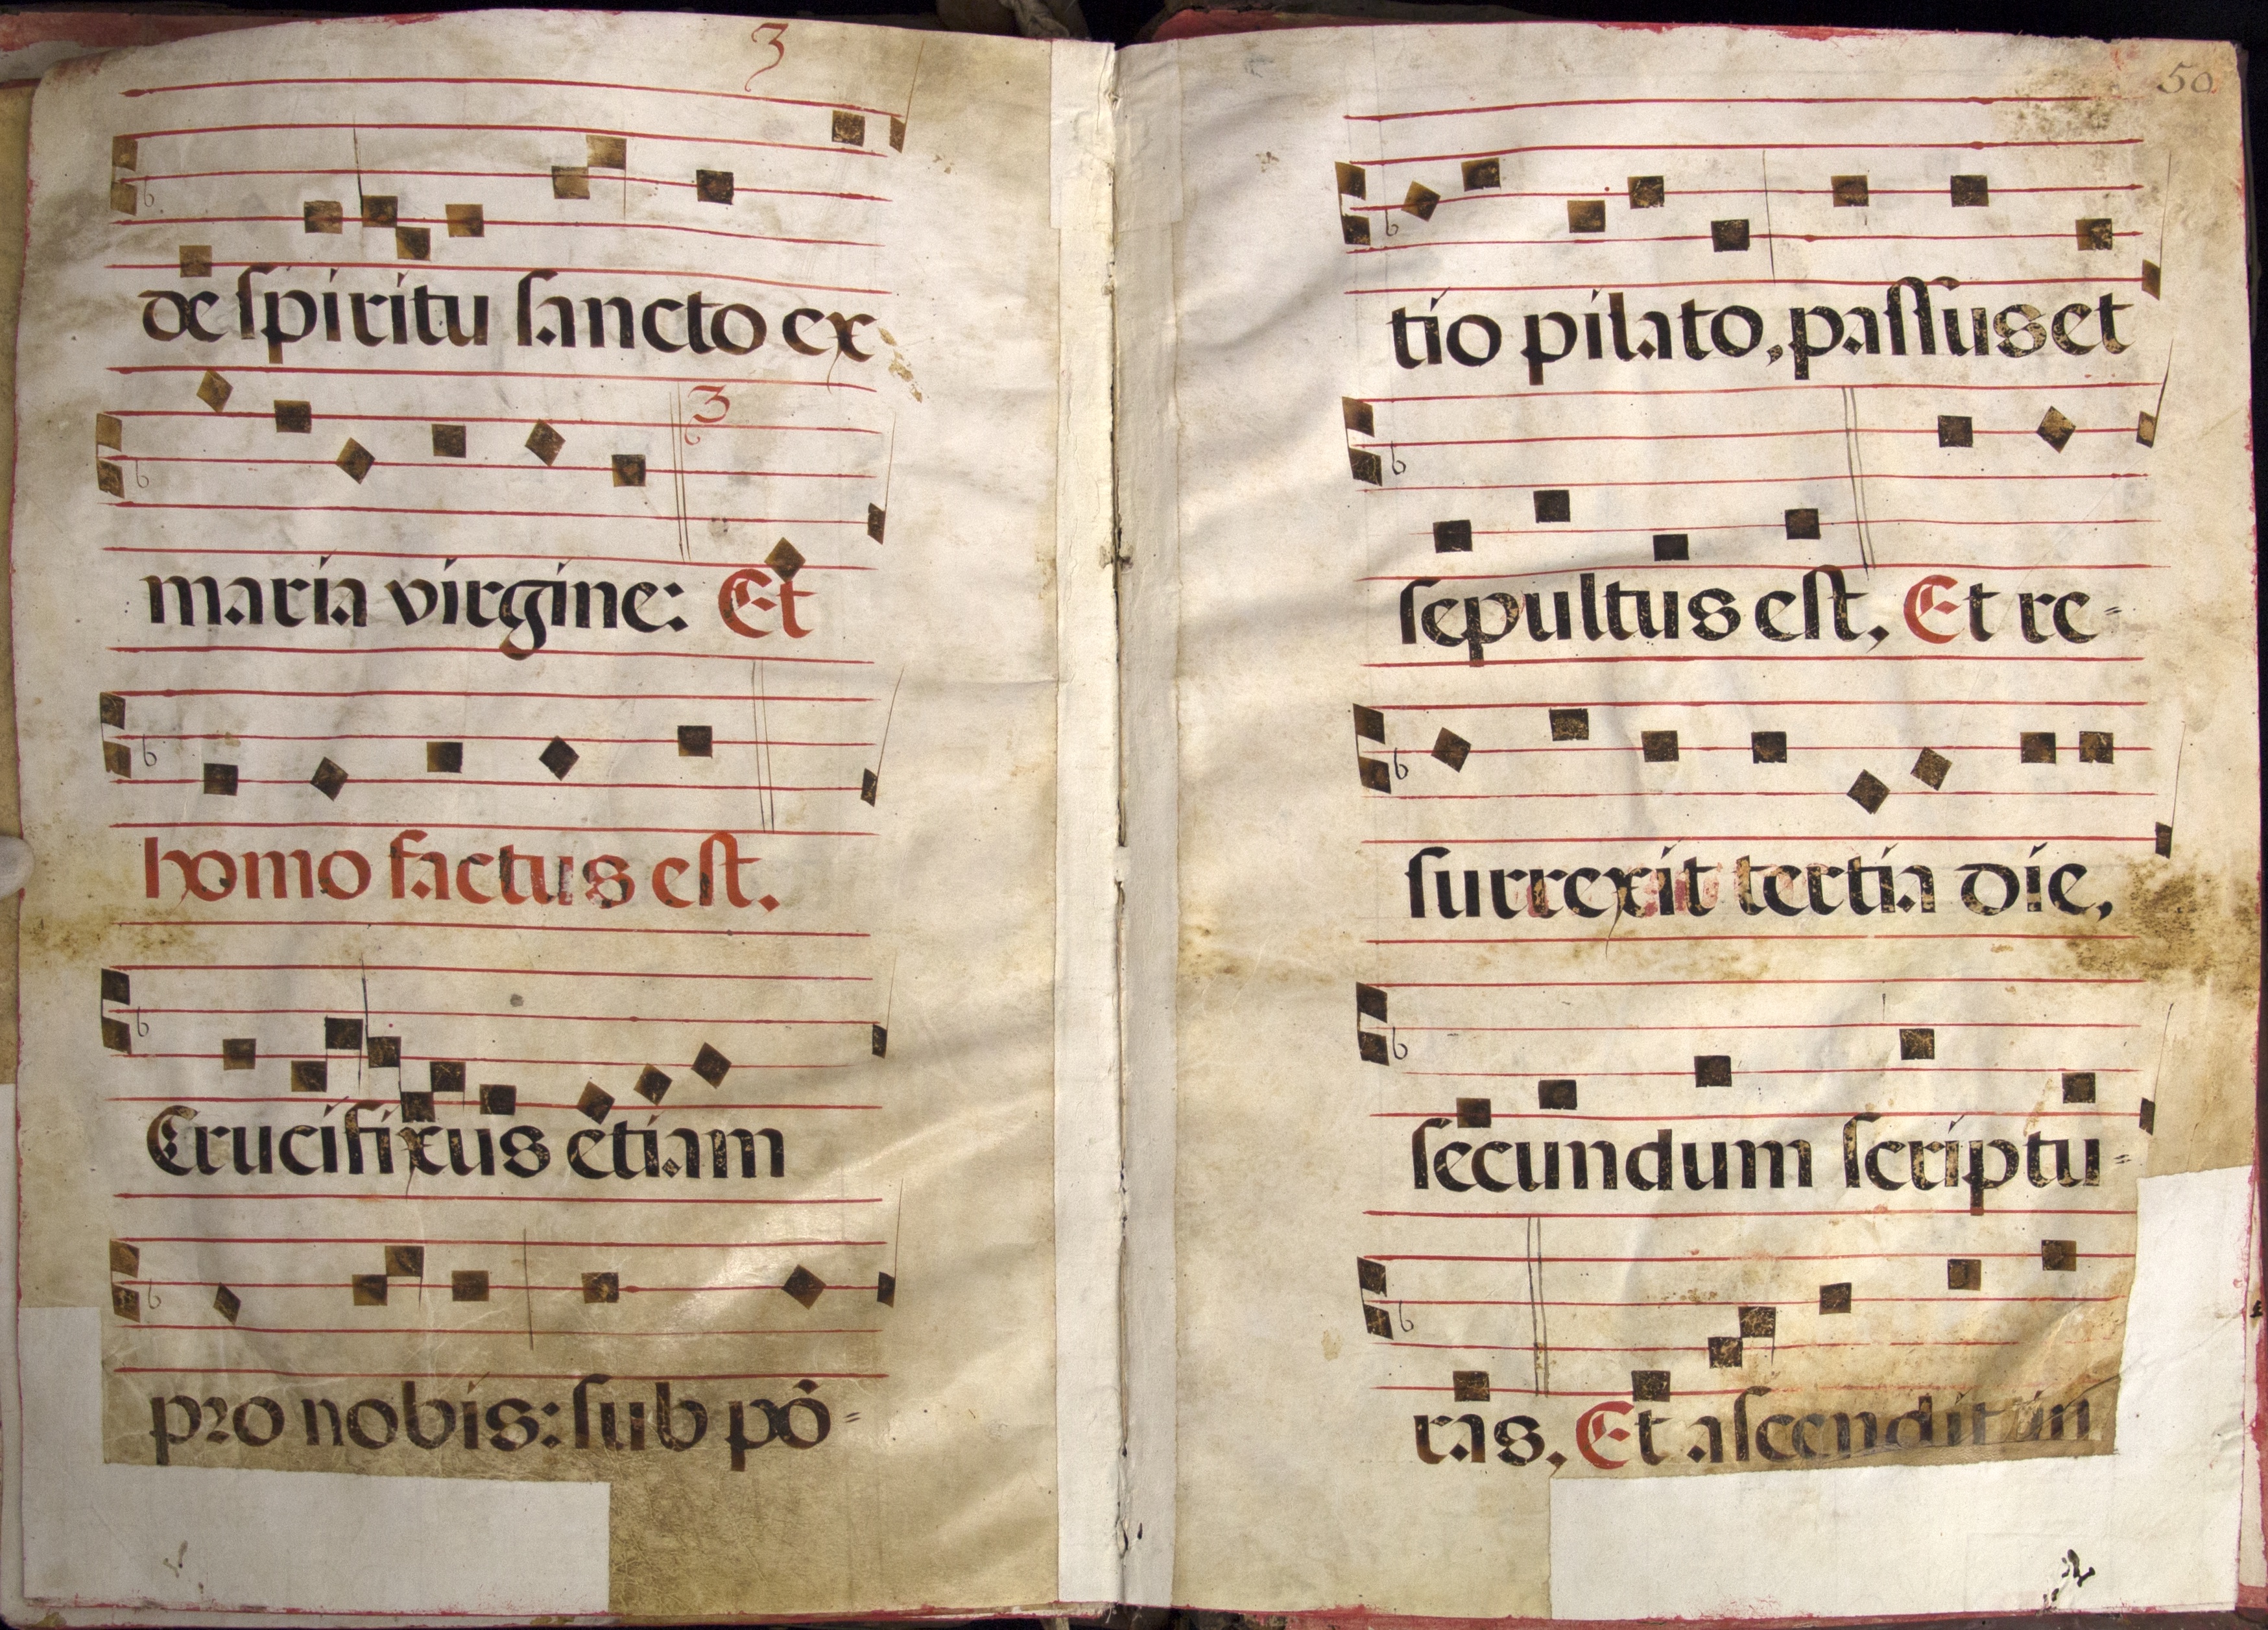 3
de spiritu sancto ex
3
maria virgine: Et
homo factus est.
Crucifixus etiam
pro nobis: sub pó=
50
tio pilato, passus et
sepultus est, Et re=
surrexit tertia die,
secundum scriptu=
ras, Et ascendit in